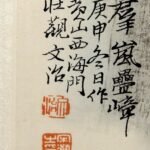 羣嵐疊嶂
庚申冬日作
黃山西海門
壯觀文治